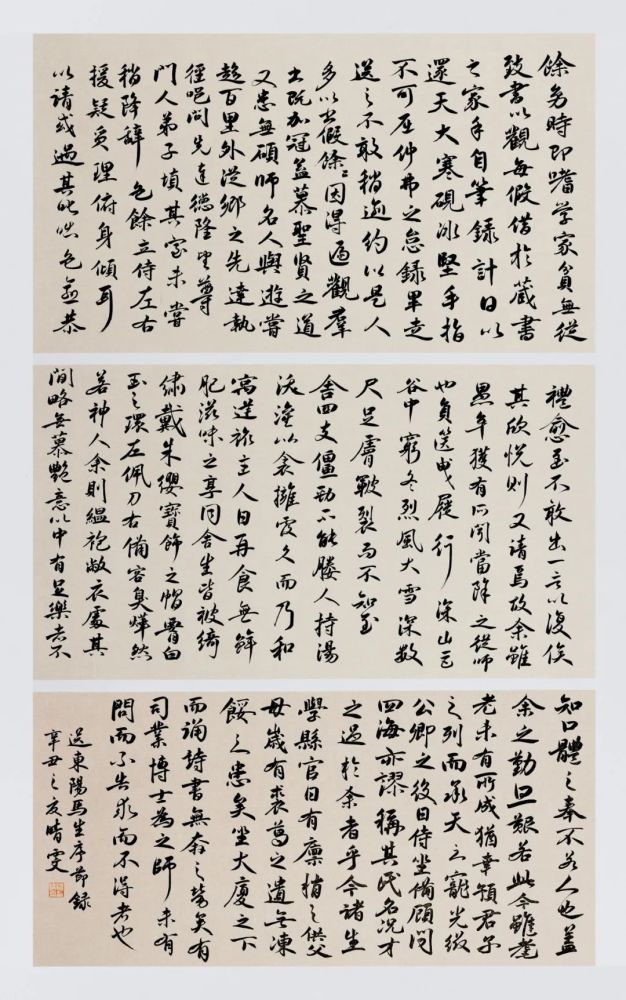 餘幼時即嗜学家貧無從
致書以觀每假借於藏書
之家手自筆録計日以
還天大寒硯冰堅手指
不可屈伸弗之怠録畢走
送之不敢稍逾約以是人
多以書假餘餘因得遍觀羣
書既加冠益慕聖賢之道
又患無碩師名人與遊嘗
趨百里外從鄉之先達執
徑叩問先達德隆望尊
門人弟子填其室未嘗
稍降辭色餘立侍左右
援疑質理俯身傾耳
以請或遇其叱咄色愈恭
禮愈至不敢出一言以復俟
其欣悦则又請焉故余雖
愚卒獲有所聞當降之從師
也負篋曳屣行深山巨
谷中窮冬烈風大雪深數
尺足膚皸裂而不知至
舍四支僵勁不能媵人持湯
沃灌以衾擁覆久而乃和
寓逆旅主人日再食無鮮
肥滋味之享同舍生皆被綺
繡戴朱纓寶飾之帽腰白
玉之環左佩刀右備容臭燁然
若神人余則緼袍敝衣處其
間略無慕艷意以中有足樂者不
知口體之奉不若人也蓋
余之勤且艱若此今雖耄
老未有所成猶幸預君子
之列而承天之寵光綴
公卿之後日侍坐備顧問
四海亦謬稱其氏名况才
之過於余者乎今諸生
學縣官日有廩稍之供父
母歲有裘葛之遺無凍
餒之患矣坐大廈之下
而誦詩書無奔之勞矣有
司業博士為之師未有
問而不告求而不得者也
送東陽馬生序節録
辛丑之夏晴雯